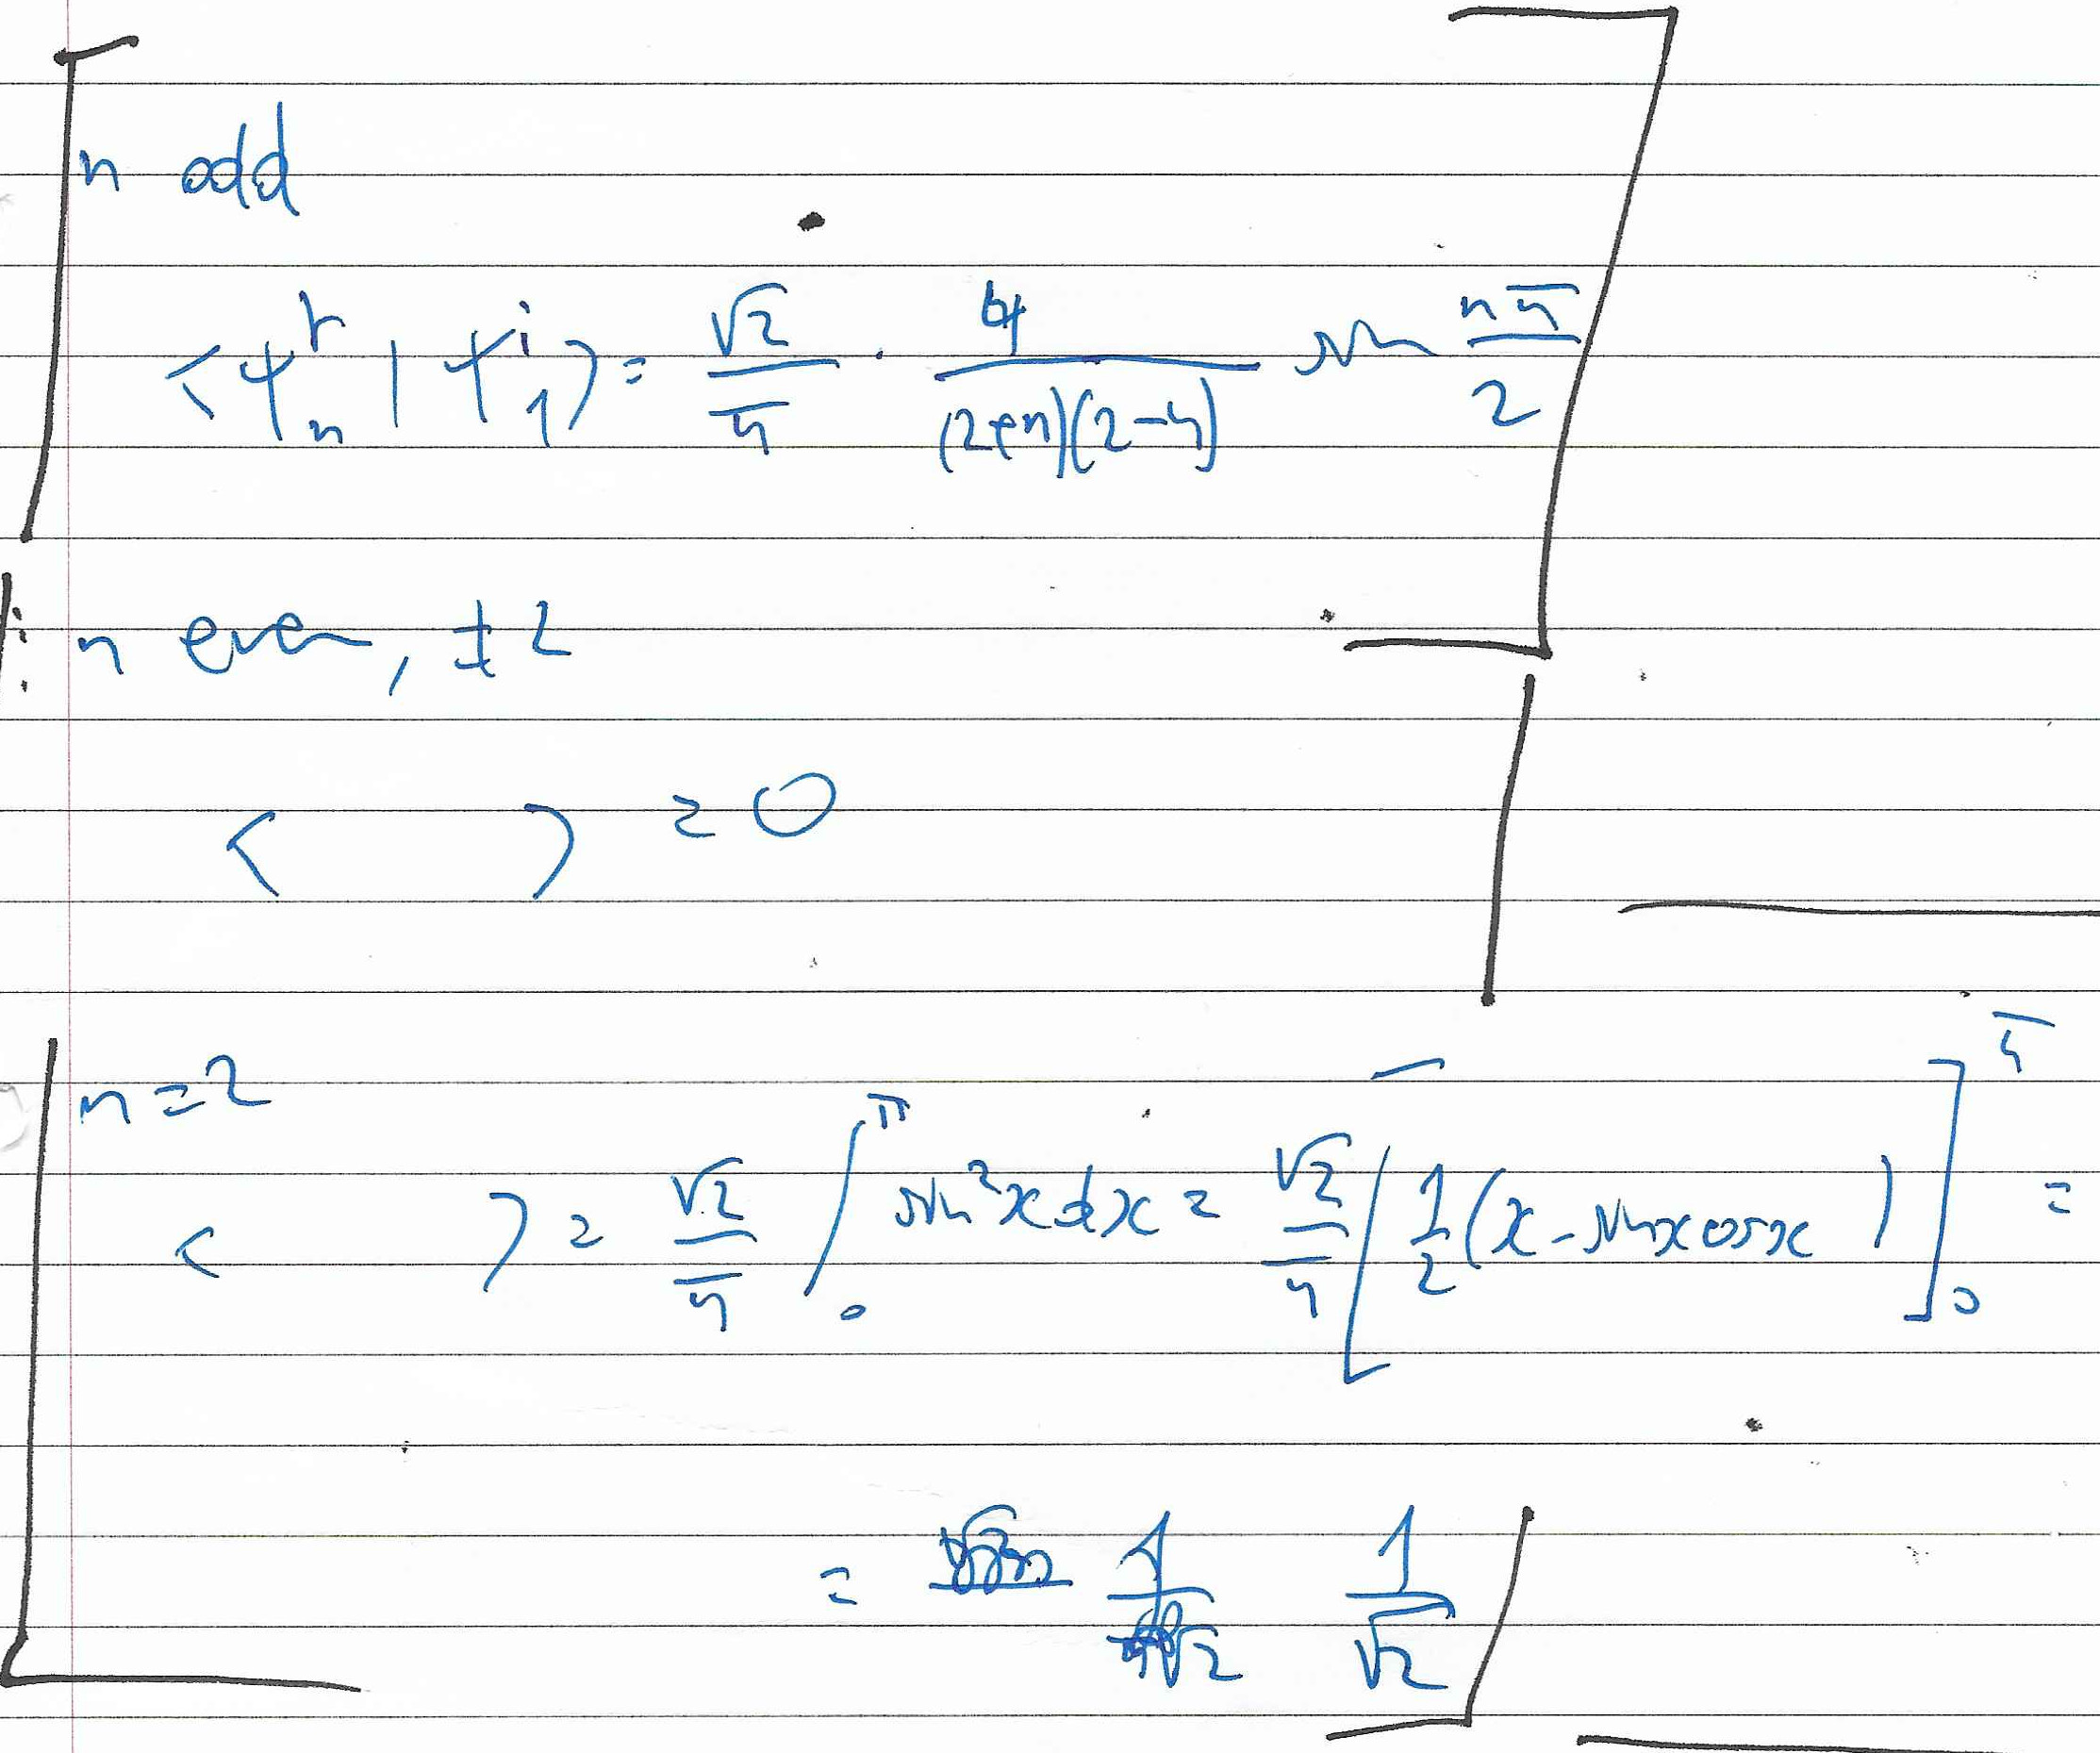 n odd
⟨ψₙʳ | ψ₁ⁱ⟩ = √2/π · 4/((2+n)(2-n)) sin nπ/2
n even, ≠2
⟨ ⟩ = 0
n = 2
⟨ ⟩ = √2/π ∫₀^π sin²x dx = √2/π [1/2 (x - sinx cosx)]₀^π =
= 1/√2